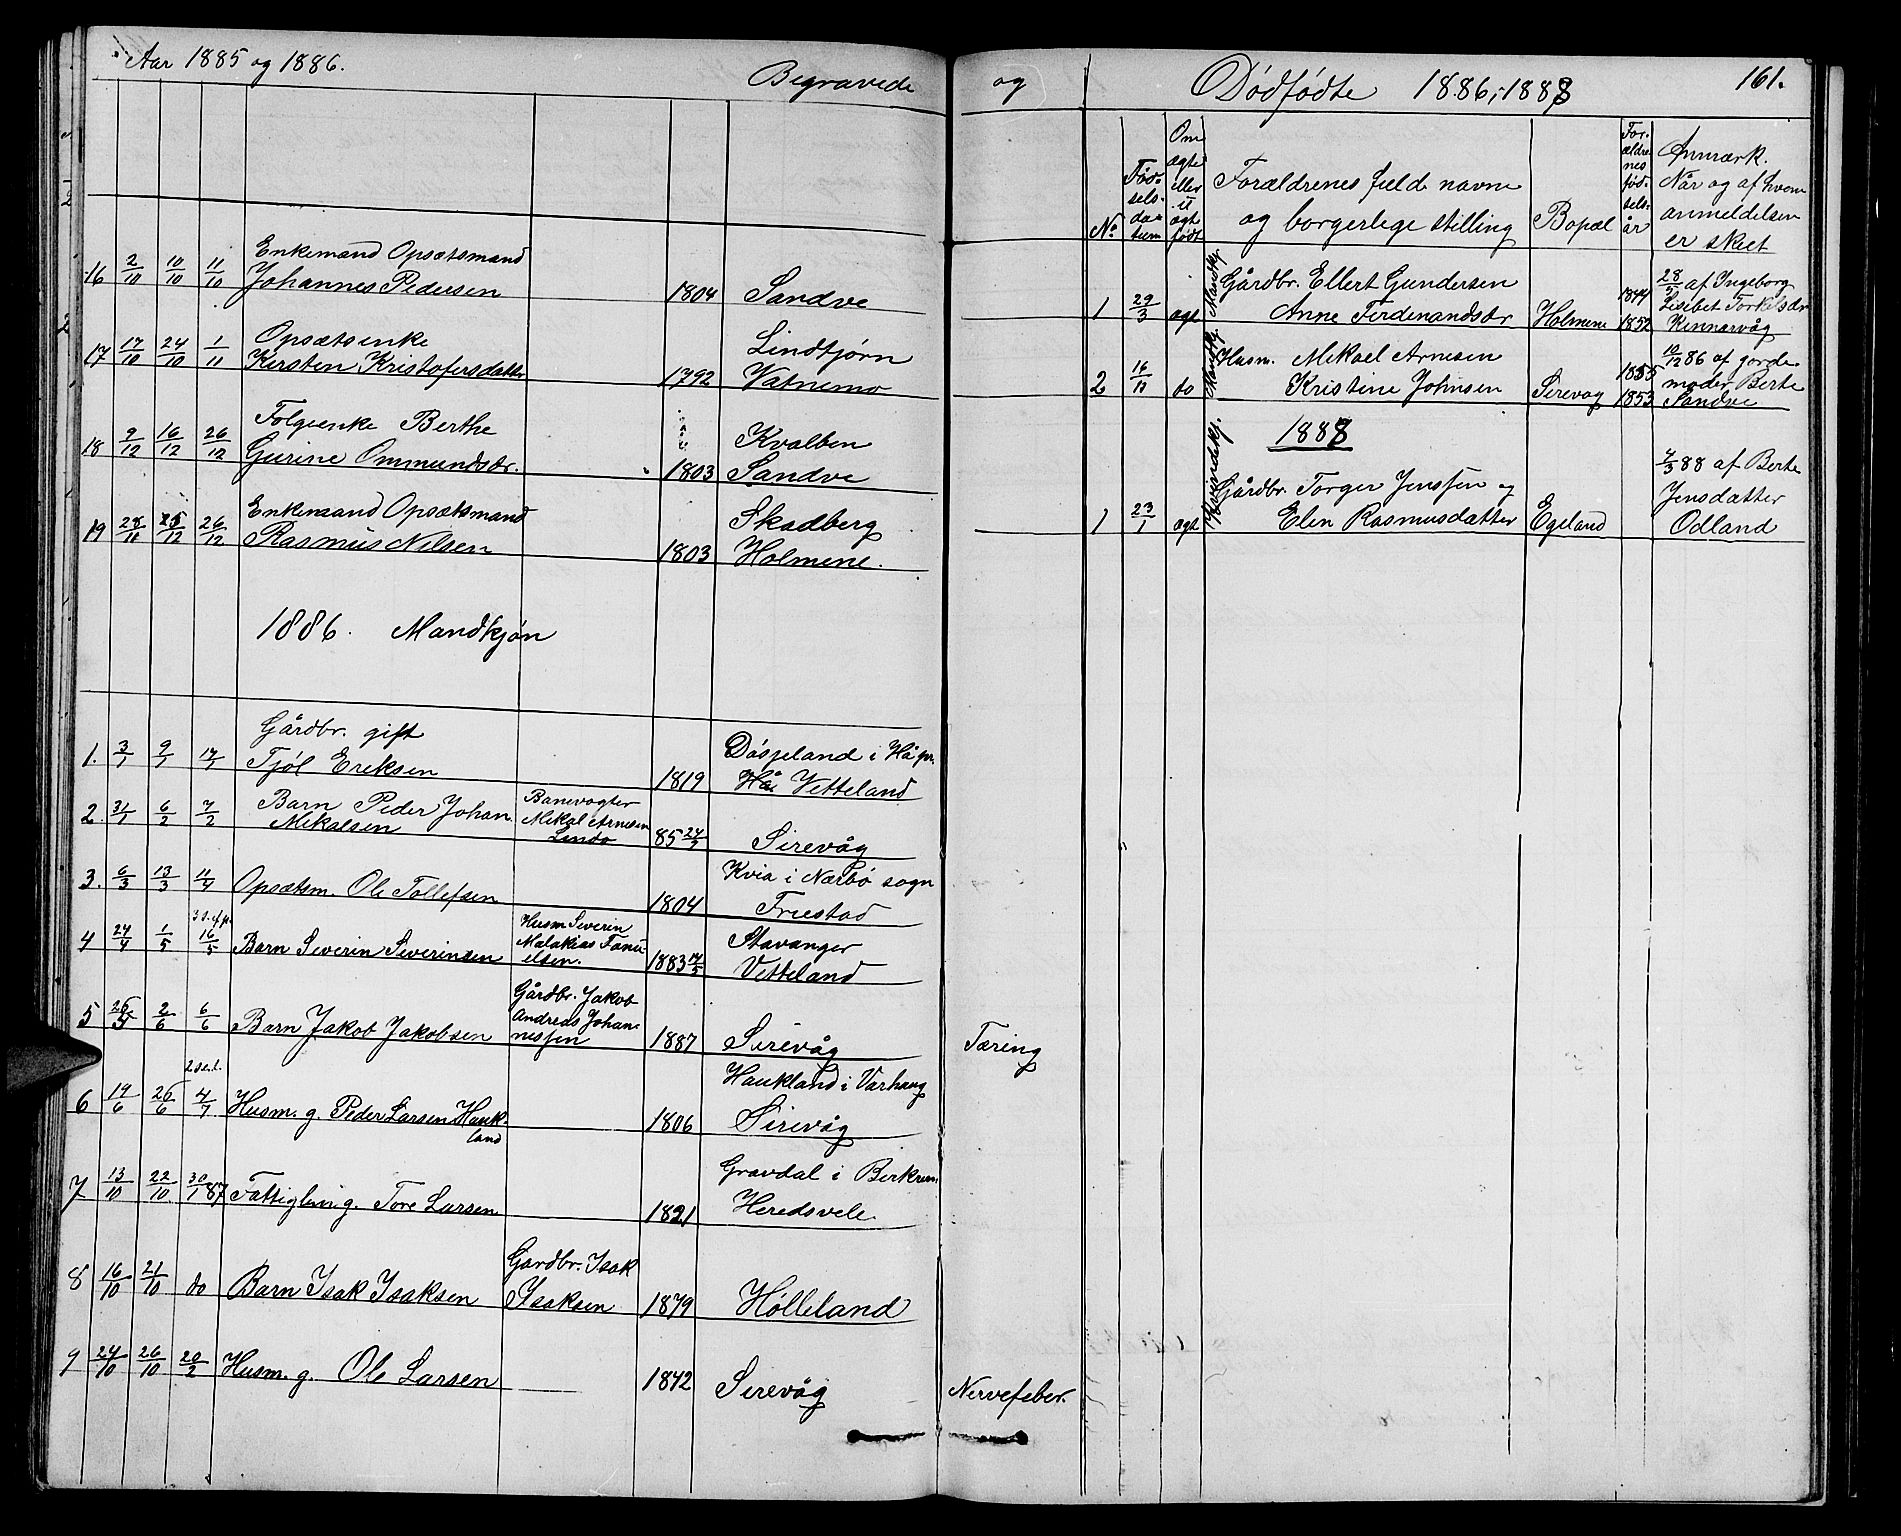 Aar 1885 og 1886.
Begravede
16 2/10 10/10 11/10 Enkemand Opsætsmand
Johannes Pedersen 1804 Sandve
17 17/10 24/10 1/11 Opsætsenke Lindtjørn
Kirsten Kristofersdatter 1792 Vatnemo
18 9/12 16/12 26/12 Folgeenke Berthe Kvalben
Gurine Ommundsdr. 1803 Sandve
19 28/11 26/12 Enkemand Opsætsmand Skadberg
Rasmus Nilsen 1803 Holmene.
1886. Mandkjøn
Gårdbr. gift Døsjeland i Hå pr.
1. 3/1 9/1 17/1 Tjøl Eriksen 1819 Hå Vetteland
2. 31/1 6/2 7/2 Barn Peder Johan Banevogter
Mikalsen Mikal Arnesen
Lindø 85 Sirevåg
3. 6/3 13/3 11/4 Opsætsm. Ole Tollefsen 1804 Kvia i Nærbø sogn
Friestad
4 24/4 1/5 16/5 Barn Severin Severinsen Husm Severin
Malakias Tanielsen. 1883 Stavanger
Vetteland
5 2/6 6/6 Barn Jakob Jakobsen Gårdbr. Jakob
Andreas Johannessen 1887 Sirevåg Tæring
6 19/6 26/6 4/7 Husm. g. Peder Larsen Haukland 1806 Haukland i Varhaug
Sirevåg
7 13/10 22/10 30/1 87 Fattiglem g. Tore Larsen 1821 Gravdal i Birkrem.
Heredsvele
8 16/10 21/10 do Barn Isak Isaksen Gardbr. Isak
Isaksen 1879 Hølleland
9 24/10 26/10 20/2 Husm. g. Ole Larsen 1842 Sirevåg Nervefeber.
og Dødfødte 1886, 1888 161.
No Fødselsdatum Om ægte eller u ægt født Forældrenes fulde navne
og borgerlege stilling Bopæl Forældrenes fødselsår Anmærk.
Når og af hvem
anmeldelsen
er skeet
1 29/3 ægt Mandkj. Gårdbr. Ellert Gundersen
Anne Ferdenandsdr Holmene 1852 af Ingeborg
Lisebet Torkelsdr
Kinnarvåg
2 do Mandkj. Husm. Mikael Arnesen
Kristine Johnsen Sirevag 1855
1853 10/12 86 af gorde
moder Berte
Sandve
1888
1 23/1 ægt Kvindekj. Gårdbr. Torger Jenssen og
Elen Rasmusdatter Egeland 88 af Berte
Jensdatter
Odland